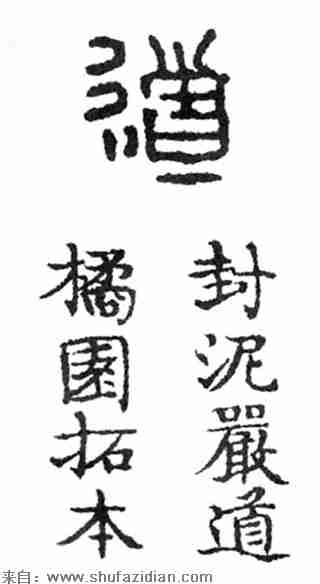 道
封泥嚴道
橘園拓本
来自：www.shufazidian.com